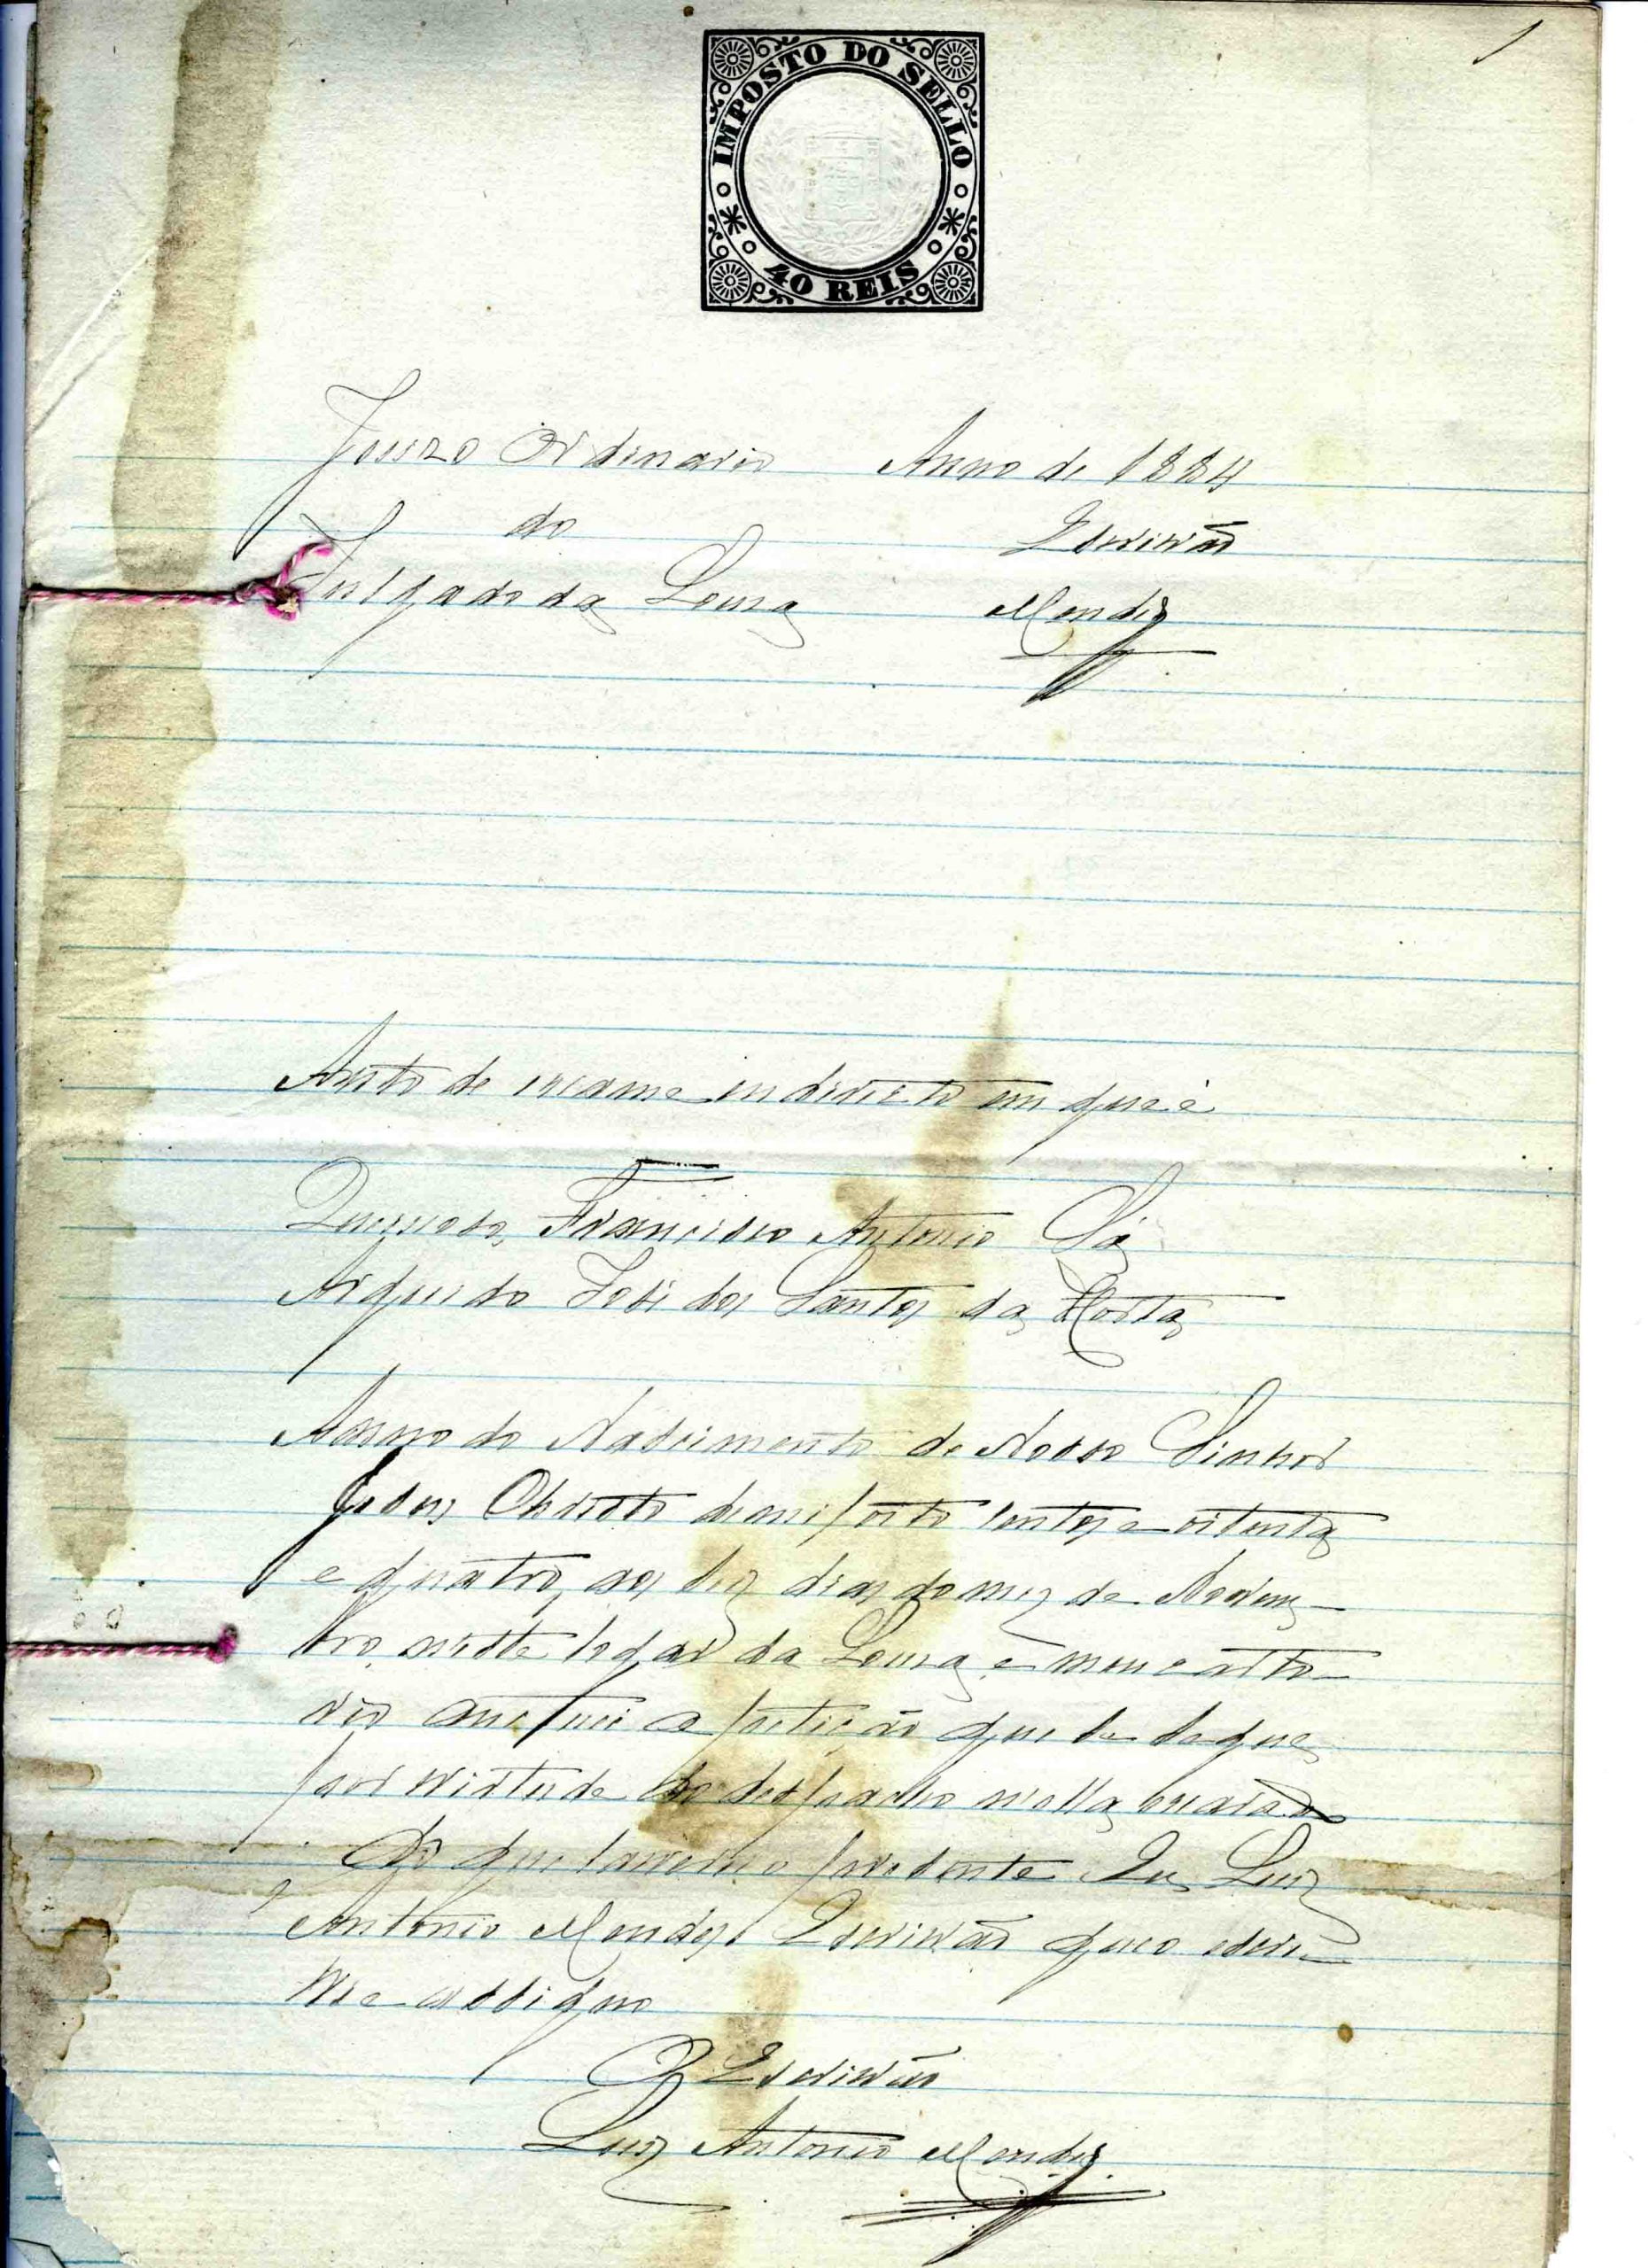 1
IMPOSTO DO SELLO
40 REIS
Juizo Ordinario Anno de 1884
do Escrivão
Julgado da Lousa Mendes
Auto de exame indirecto em que é
Queixoso, Francisco Antonio Sá
Arguido José dos Santos da Costa
Anno do Nascimento de Nosso Senhor
Jesus Christo de mil oito centos e oitenta
e quatro, aos dez dias do mez de Novem-
bro, neste logar da Lousa e meu carto-
rio autuei a petição que se segue
por virtude do despacho n'ella exarado
Do que lavrei o presente Eu Luiz
Antonio Mendes Escrivão que o escre-
vi e assigno
O Escrivão
Luiz Antonio Mendes